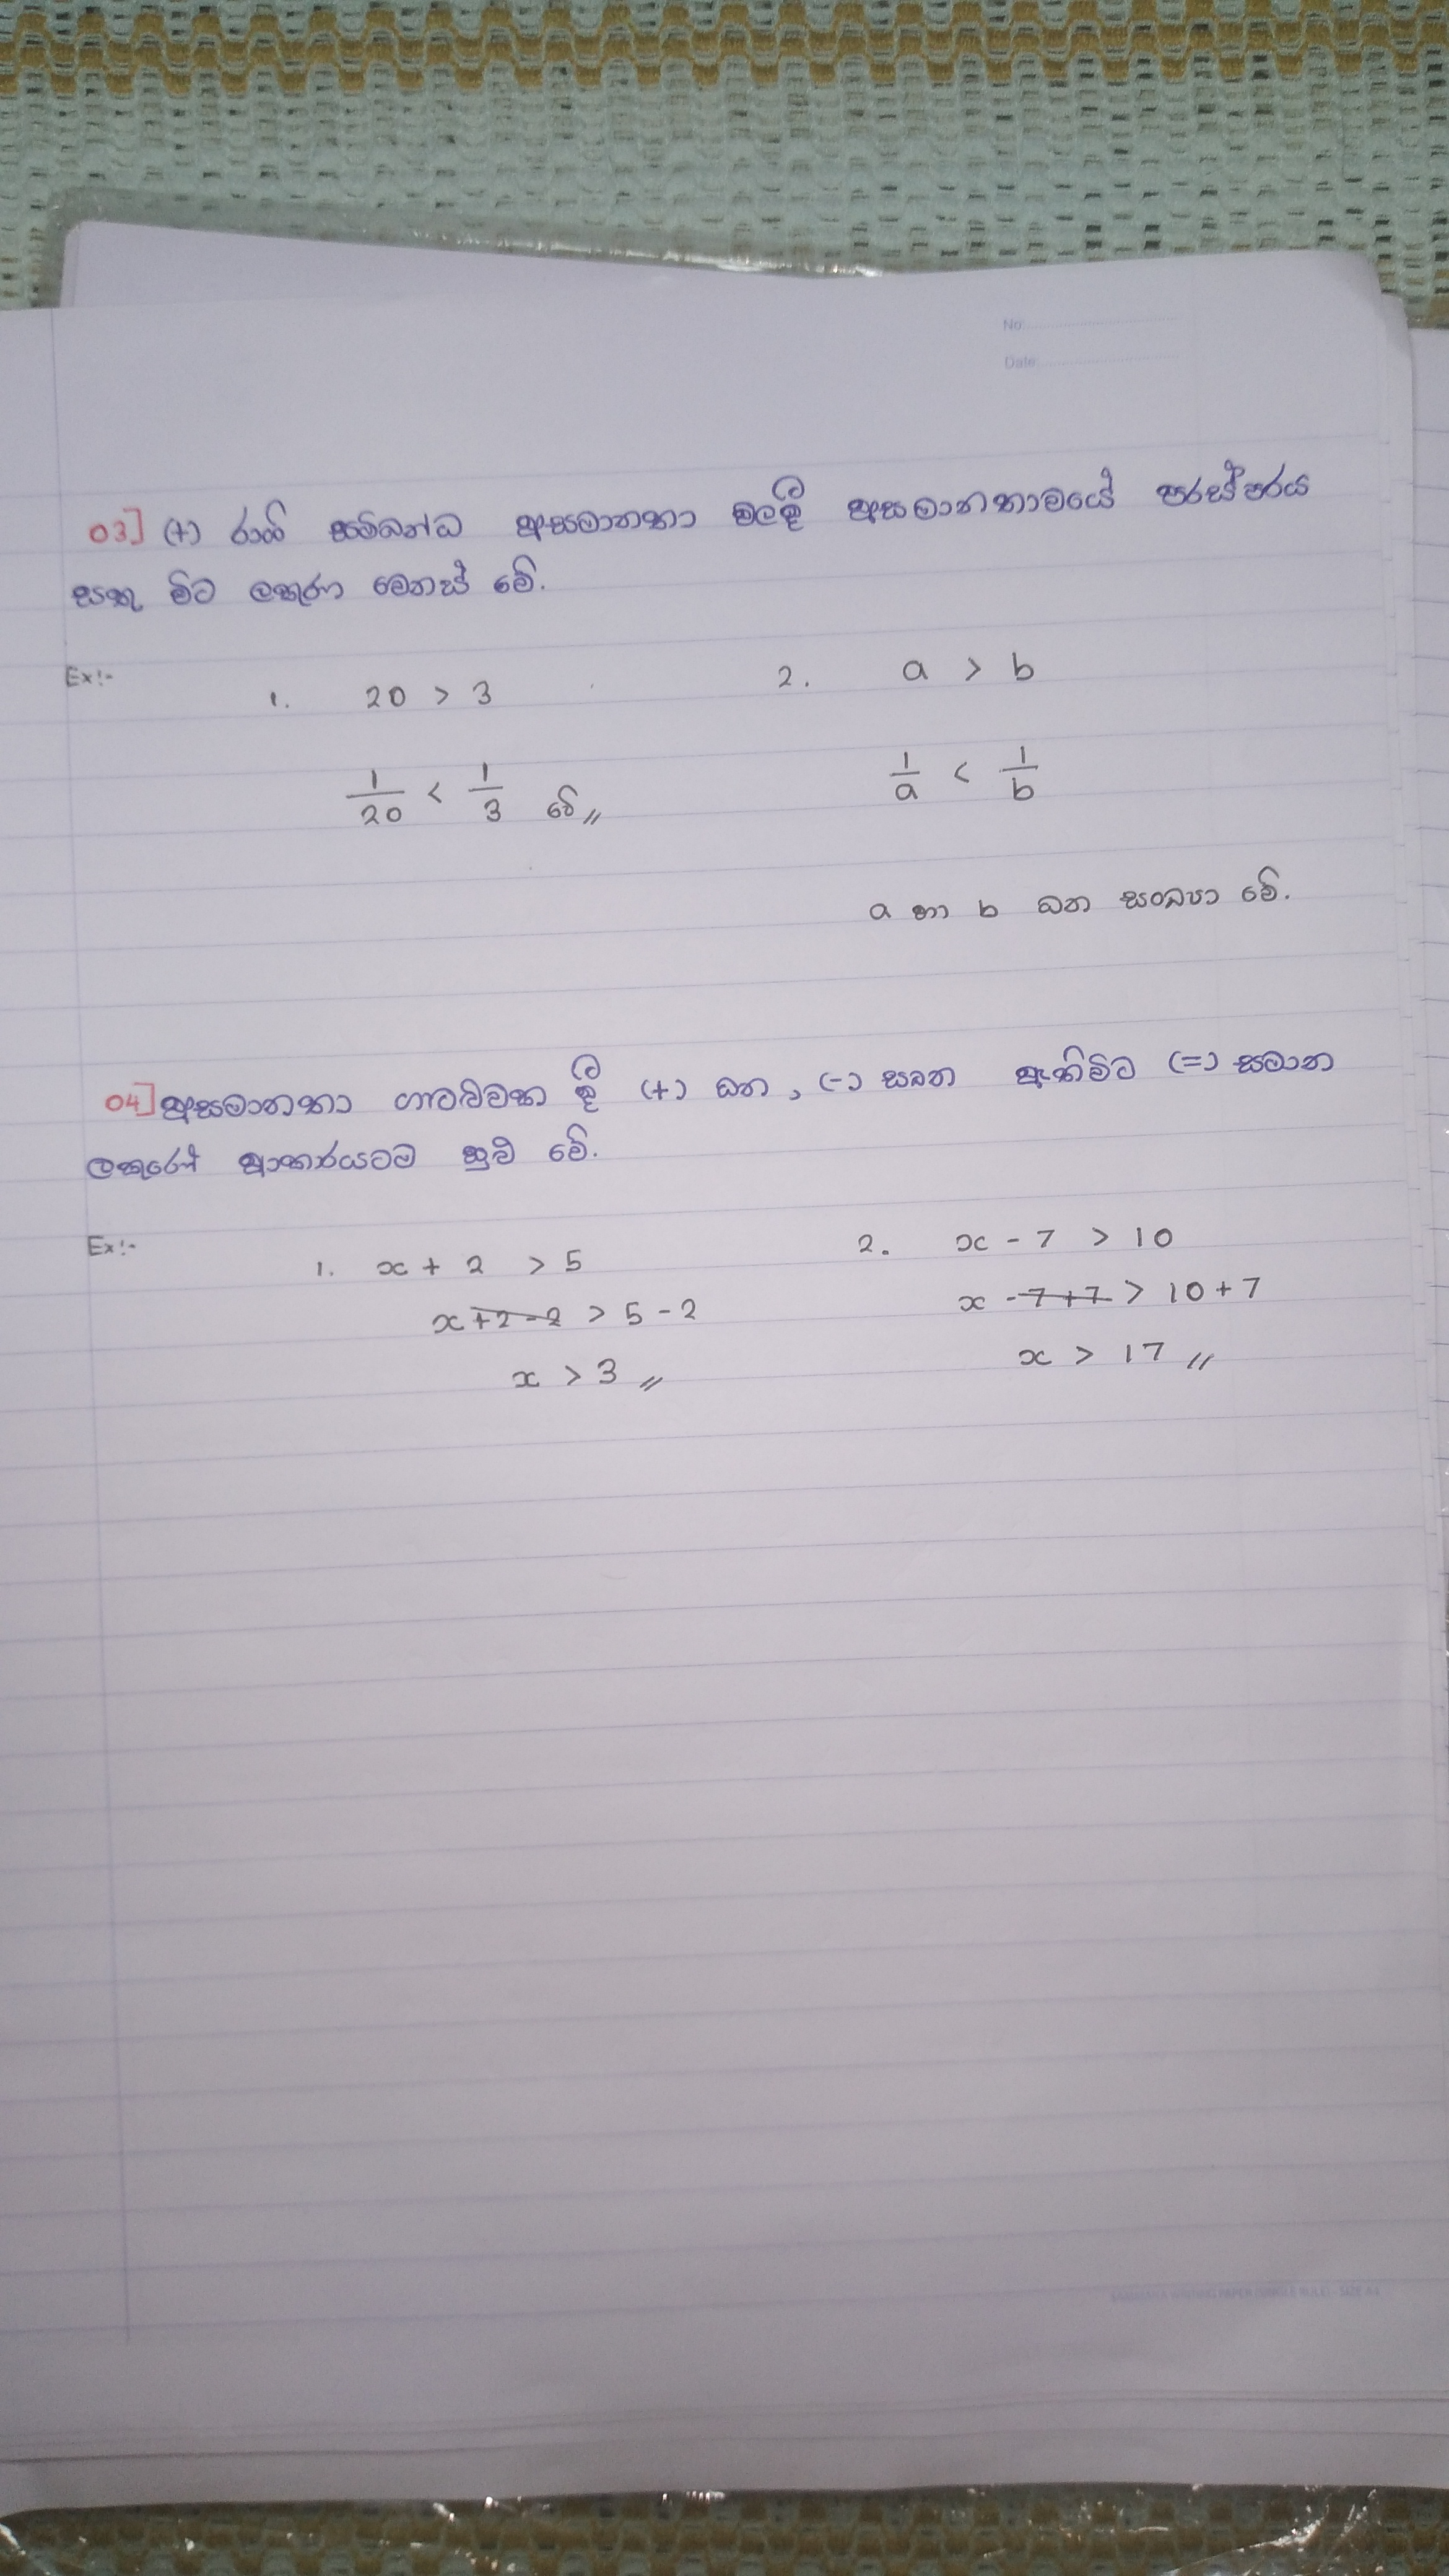 No:
Date:
03] (+) රාශි සම්බන්ධ අසමානතා වලදී අසමානතාවයේ පරස්පරය
සතු විට ලකුණ වෙනස් වේ.
Ex:-
1. 20 > 3
2. a > b
1/20 < 1/3 වේ //
1/a < 1/b
a හා b ධන සංඛ්‍යා වේ.
04] අසමානතා ගැටළුවක දී (+) ධන, (-) සෘන ඇතිවිට (=) සමාන
ලකුණේ ආකාරයටම සුළු වේ.
Ex:-
1. x + 2 > 5
x + 2 - 2 > 5 - 2
x > 3 //
2. x - 7 > 10
x - 7 + 7 > 10 + 7
x > 17 //